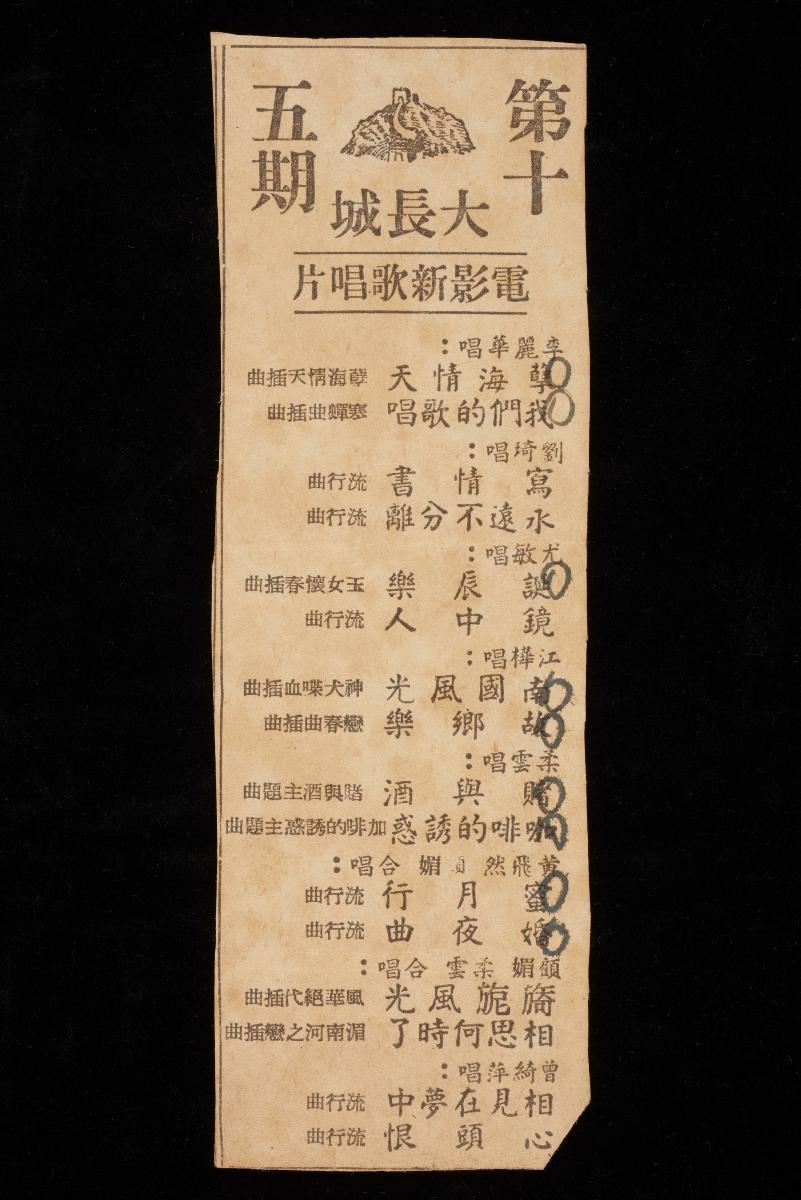 第十五期
大長城
電影新歌唱片
李麗華唱：
孽海情天 孽海情天插曲
我們的歌唱 寒蟬曲插曲
劉琦唱：
寫情書 流行曲
永遠不分離 流行曲
尤敏唱：
誕辰樂 玉女懷春插曲
鏡中人 流行曲
江樺唱：
南國風光 神犬喋血插曲
故鄉樂 戀春曲插曲
柔雲唱：
賭與酒 賭與酒主題曲
咖啡的誘惑 加啡的誘惑主題曲
黃飛然 媚合唱：
蜜月行 流行曲
婚夜曲 流行曲
顧媚 柔雲合唱：
旖旎風光 風華絕代插曲
相思何時了 湄南河之戀插曲
曾綺萍唱：
相見在夢中 流行曲
心頭恨 流行曲